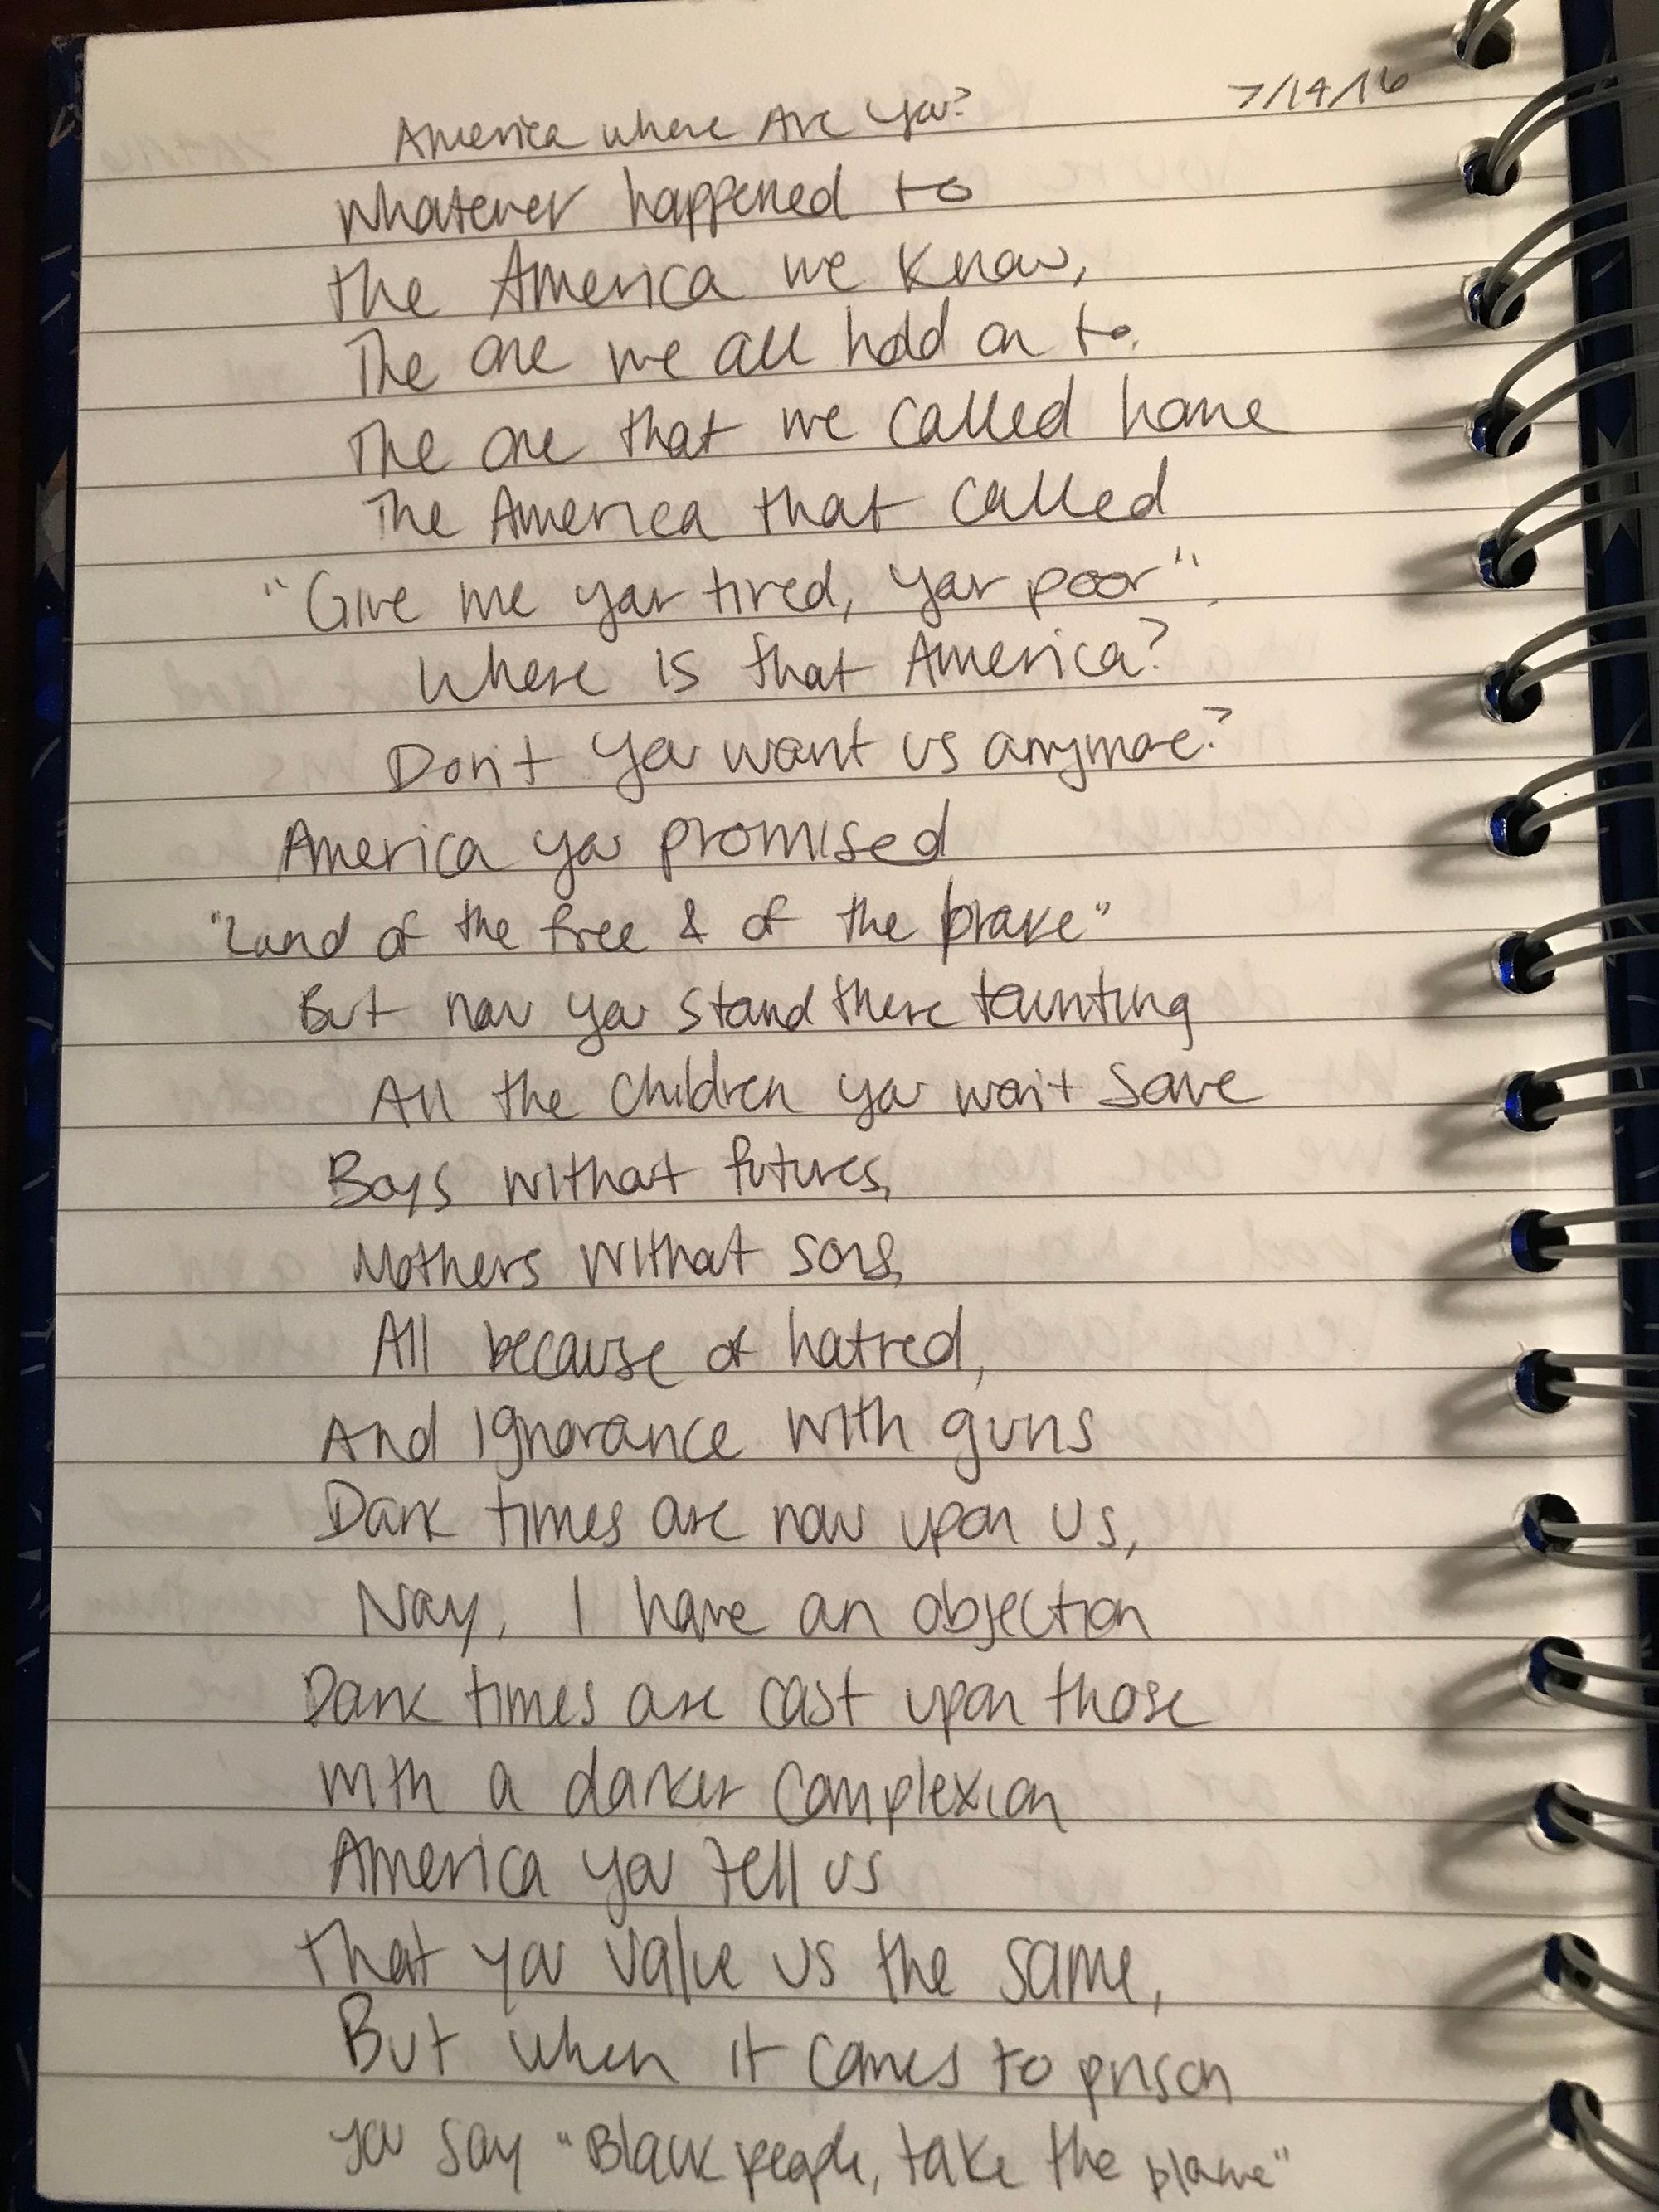 7/14/16
America where Are You?
Whatever happened to
the America we know,
The one we all hold on to.
The one that we called home
The America that called
"Give me your tired, your poor",
Where is that America?
Don't you want us anymore?
America you promised
"Land of the free & of the brave"
But now you stand there taunting
All the children you won't save
Boys without futures,
Mothers without sons,
All because of hatred,
And ignorance with guns
Dark times are now upon us,
Nay, I have an objection
Dark times are cast upon those
with a darker complexion
America you tell us
That you value us the same,
But when it comes to prison
you say "Black people, take the blame"